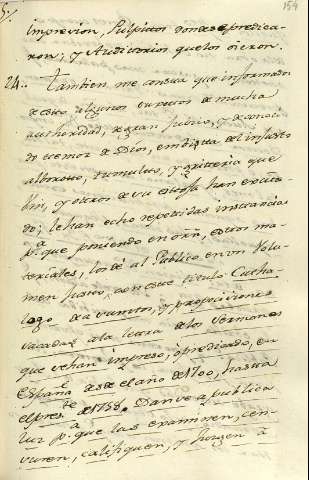 159
impresion, Pulpitos donde se predica-
ron; y Auditorios que los oieron.
24.. Tambien me consta que informados
de esto algunos sugetos de mucha
authoridad, de gran juicio, y de conoci-
do temor de Dios, en vista del injusto
alboroto, tumulto, y griteria que
bió, y otros de su estofa han excita-
do; le han echo repetidas instancias
p.ª que poniendo en orñ, estos ma-
teriales, los dé al Publico en un Volu-
men justo, con este titulo Catha-
logo de asuntos, y proposiciones
sacadas a la letra de los Sermones
que se han impreso, ó predicado, en
España desde el año de 1700, hasta
el pres.te de 1758. Danse a publica
luz p.ª que las examinen, cen-
suren, califiquen, y hagan á